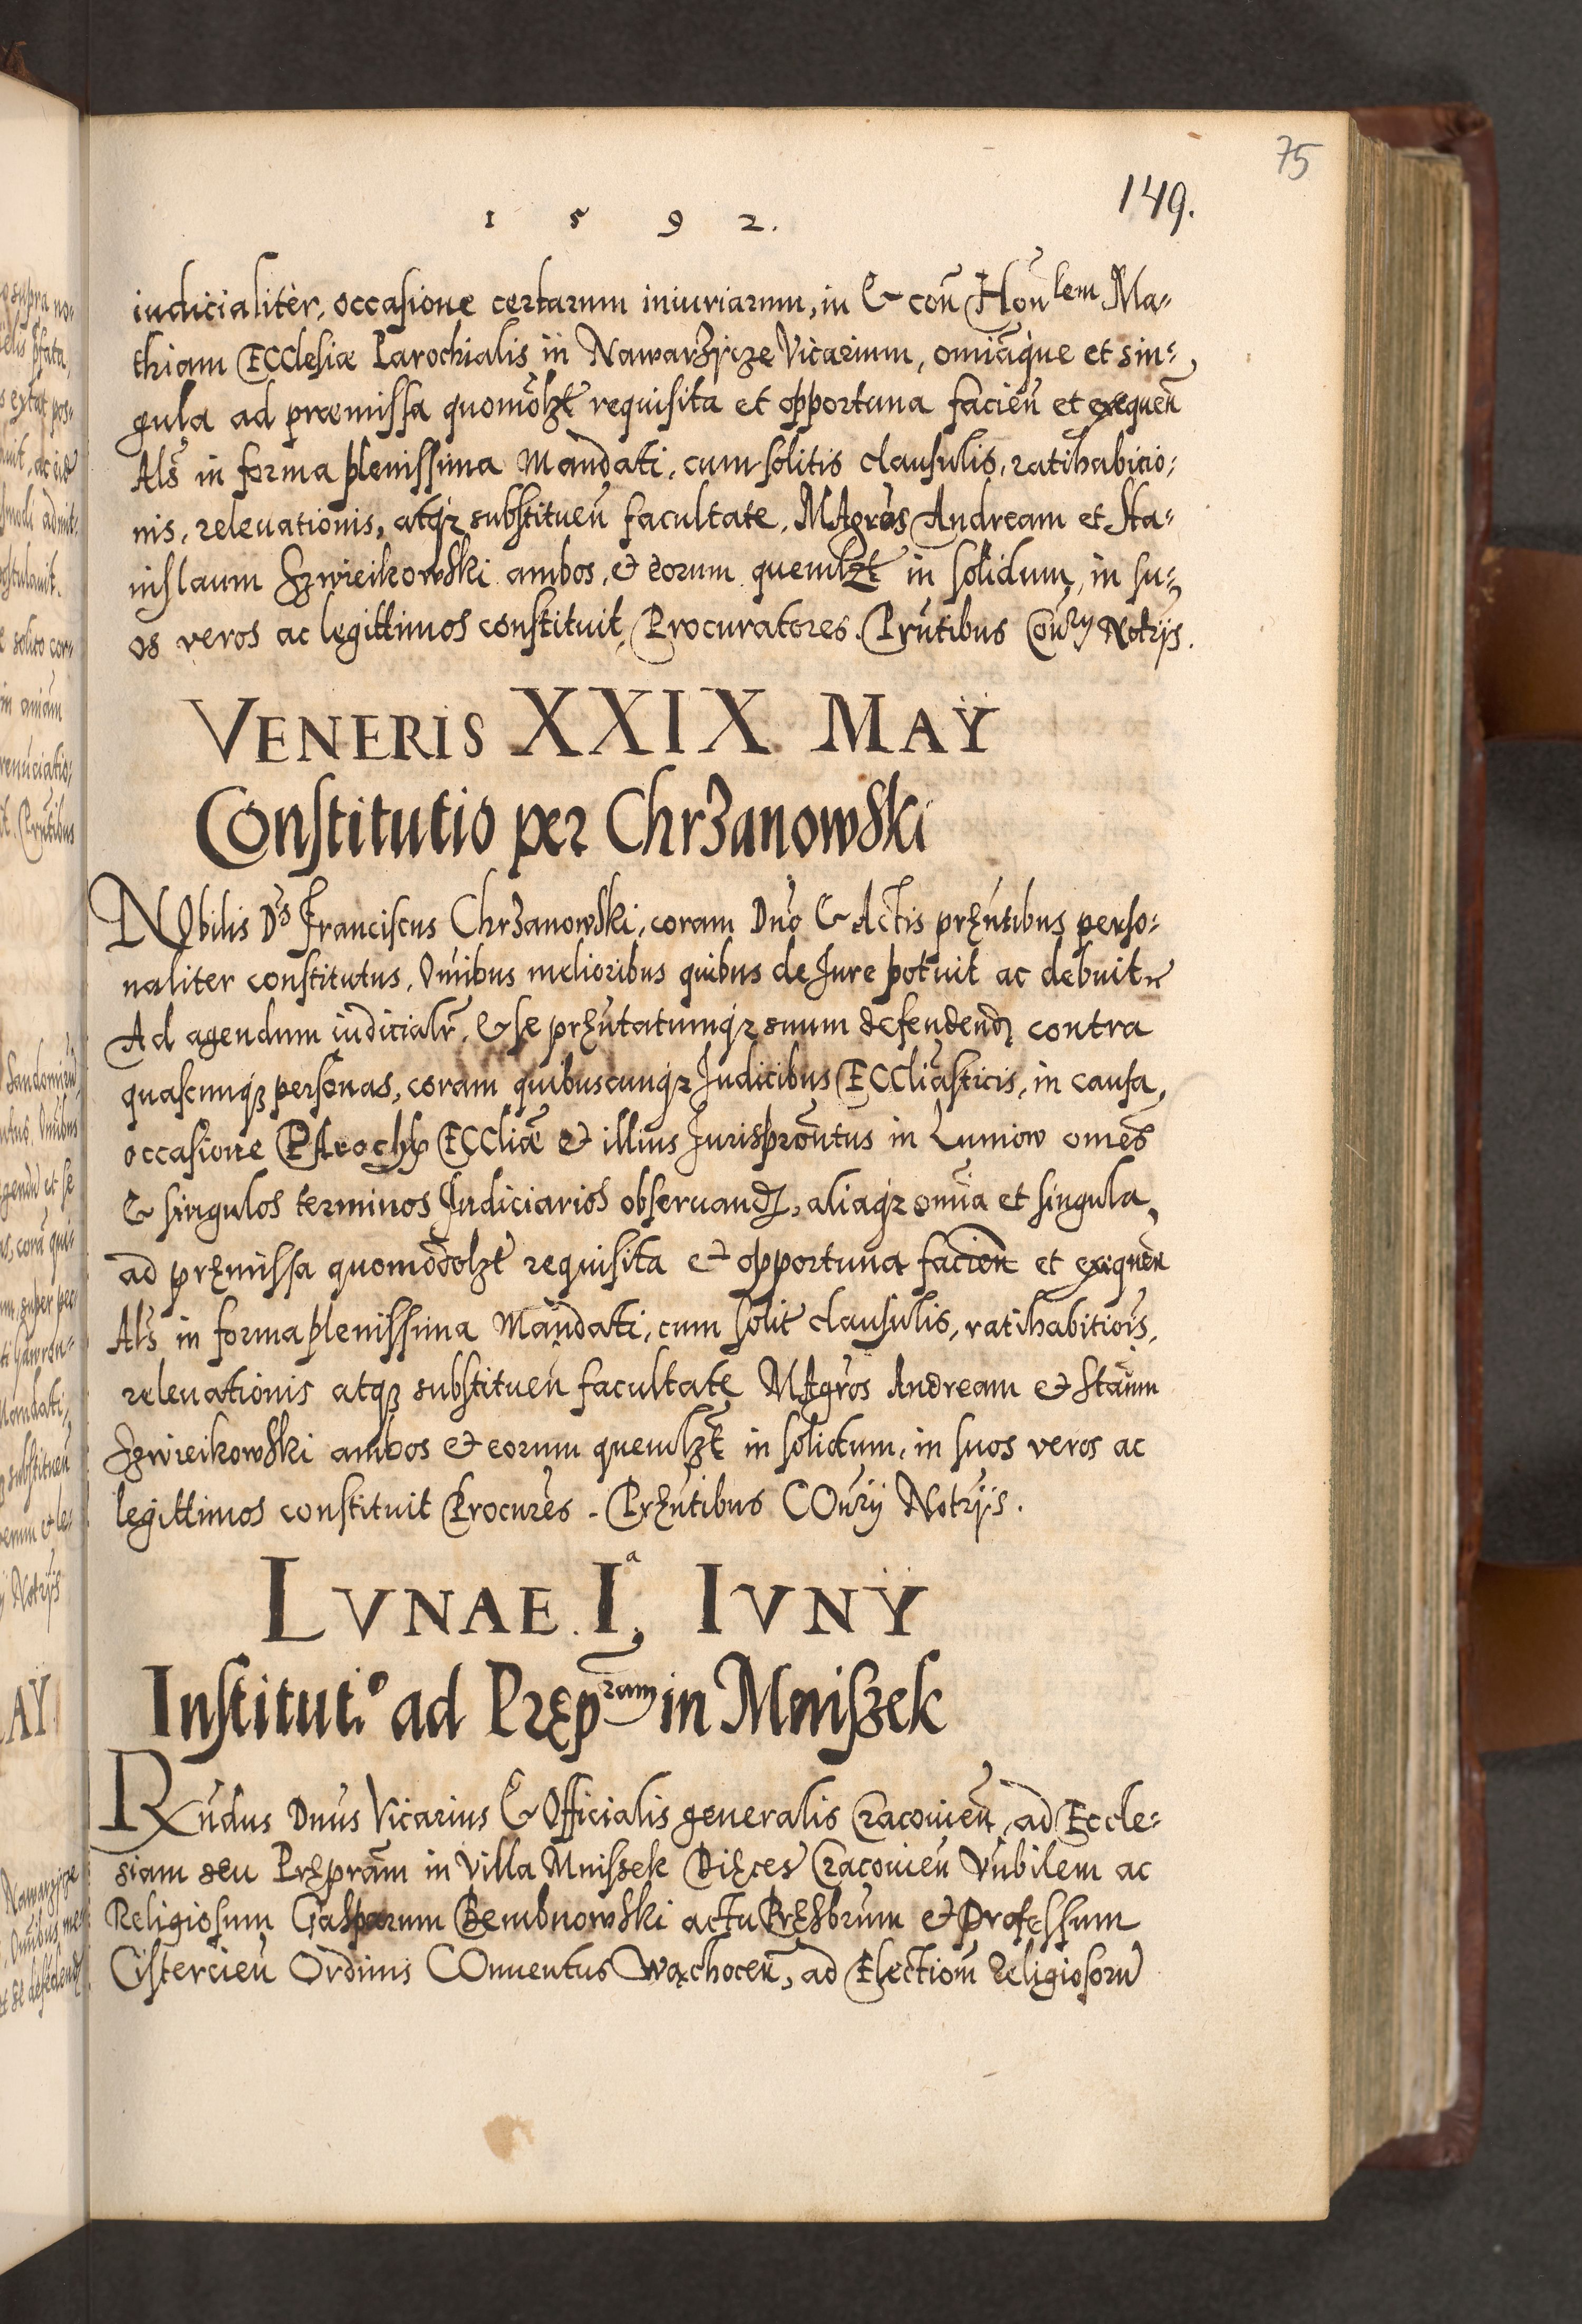 75
149.
1 5 9 2.
iudicialitèr, occasione certarum iniuriarum, in & con̄ Hon̄lem Ma=
thiam Ecclesiæ Parochialis in Nawarzÿcze Vicarium, omīaque et sin=
gula ad præmissa quomōlꝫt requisita et opportuna facien̄ et exequen̄
Als̄ in forma plenissima Mandati, cum solitis clausulis, ratihabicio=
nis, releuationis, atqꝫ substituen̄ facultate, MAgros̄ Andream et Sta=
nislaum Szwieikowski ambos, & eorum quemlꝫt in solidum, in su=
os veros ac legittimos constituit, Procuratores. Prn̄tibus Con̄rÿ Notrÿs.
VENERIS XXIX MAŸ
Constitutio per Chrzanowski
NObilis Ds̄ Franciscus Chrzanowski, coram Dn̄o & Actis pręn̄tibus perso=
naliter constitutus, Om̄ibus melioribus quibus de Iure potuit ac debuit
Ad agendum iudicialr̄, & se pręn̄tatumqꝫ suum defendendꝫ contra
quascunqꝫ personas, coram quibuscunqꝫ Iudicibus Eccliāsticis, in causa,
occasione PArochÿ Eccliǣ & illius Jurisprōntus in Luniow omēs
& singulos terminos Judiciarios obseruandꝫ, aliaqꝫ omīa et singula,
ad pręmissa quomodolꝫt requisita & opportuna facien̄ et exequen̄
Als̄ in forma plenissima Mandati, cum solit clausulis, ratihabitiōis,
releuationis atqꝫ substituen̄ facultate MAgros̄ Andream & Staūm
Szwieikowski ambos & eorum quemlꝫt in solidum, in suos veros ac
legittimos constituit Procures̄. Pręn̄tibus COn̄rÿ Notrÿs.
LVNAE Iª, IVNŸ
Institutio ad Prępram in Mniszek
Rn̄dus Dn̄us Vicarius & Officialis generalis Cracouien̄, ad Eccle=
siam seu Pręprām in Villa Mniszek Dięces Cracouien̄ Vn̄bilem ac
Religiosum Gasparum Bembnowski actu Pręsbrum & Professum
Cistercien̄ Ordinis COnuentus Wąchocen̄, ad Electiom̄ Religiosorū